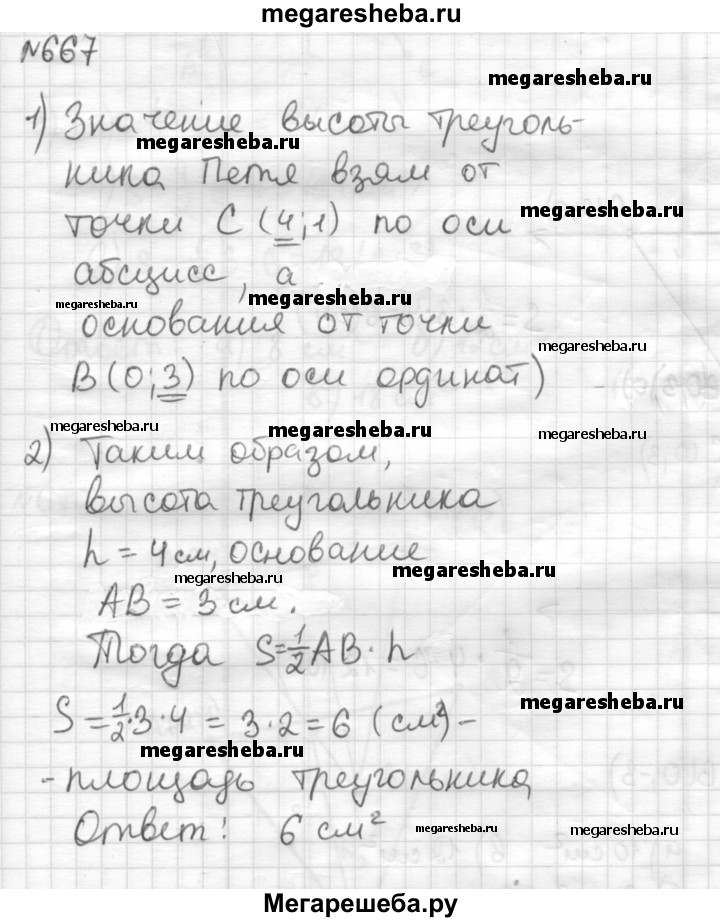 megaresheba.ru
№667
megaresheba.ru
1) Значение высоты треуголь-
megaresheba.ru
ника Петя взял от
точки С (4;1) по оси
megaresheba.ru
абсцисс, а
megaresheba.ru
megaresheba.ru
основания от точки
megaresheba.ru
В (0;3) по оси ординат)
megaresheba.ru
megaresheba.ru
megaresheba.ru
2) Таким образом,
высота треугольника
h = 4 см, основание
megaresheba.ru
megaresheba.ru
АВ = 3 см.
Тогда S=1/2 АВ · h
megaresheba.ru
S = 1/2·3·4 = 3·2 = 6 (см²) -
megaresheba.ru
- площадь треугольника
megaresheba.ru
Ответ: 6 см²
megaresheba.ru
megaresheba.ru
Мегарешеба.ру